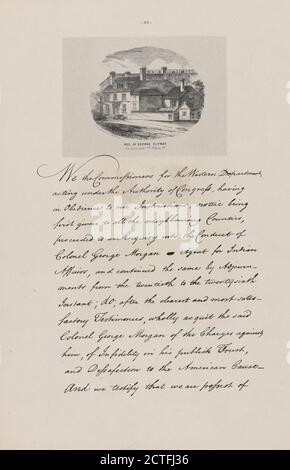 RES. OF GEORGE CLYMER
We the Commissioners for the Western Department,
acting under the Authority of Congress, having
in Obedience to our Instructions, notice being
first given to all the neighbouring Counties,
proceeded to an Enquiry into the Conduct of
Colonel George Morgan — Agent for Indian
Affairs, and continued the same by Adjourn-
ments from the twentieth to the twenty sixth
Instant; do, after the clearest and most satis-
factory Testimonies, wholly acquit the said
Colonel George Morgan of the Charges against
him, of Infidelity in his publick Trust,
and Disaffection to the American Cause—
And we testify that we are possest of
alamy
Image ID: 2CTFJ36
www.alamy.com